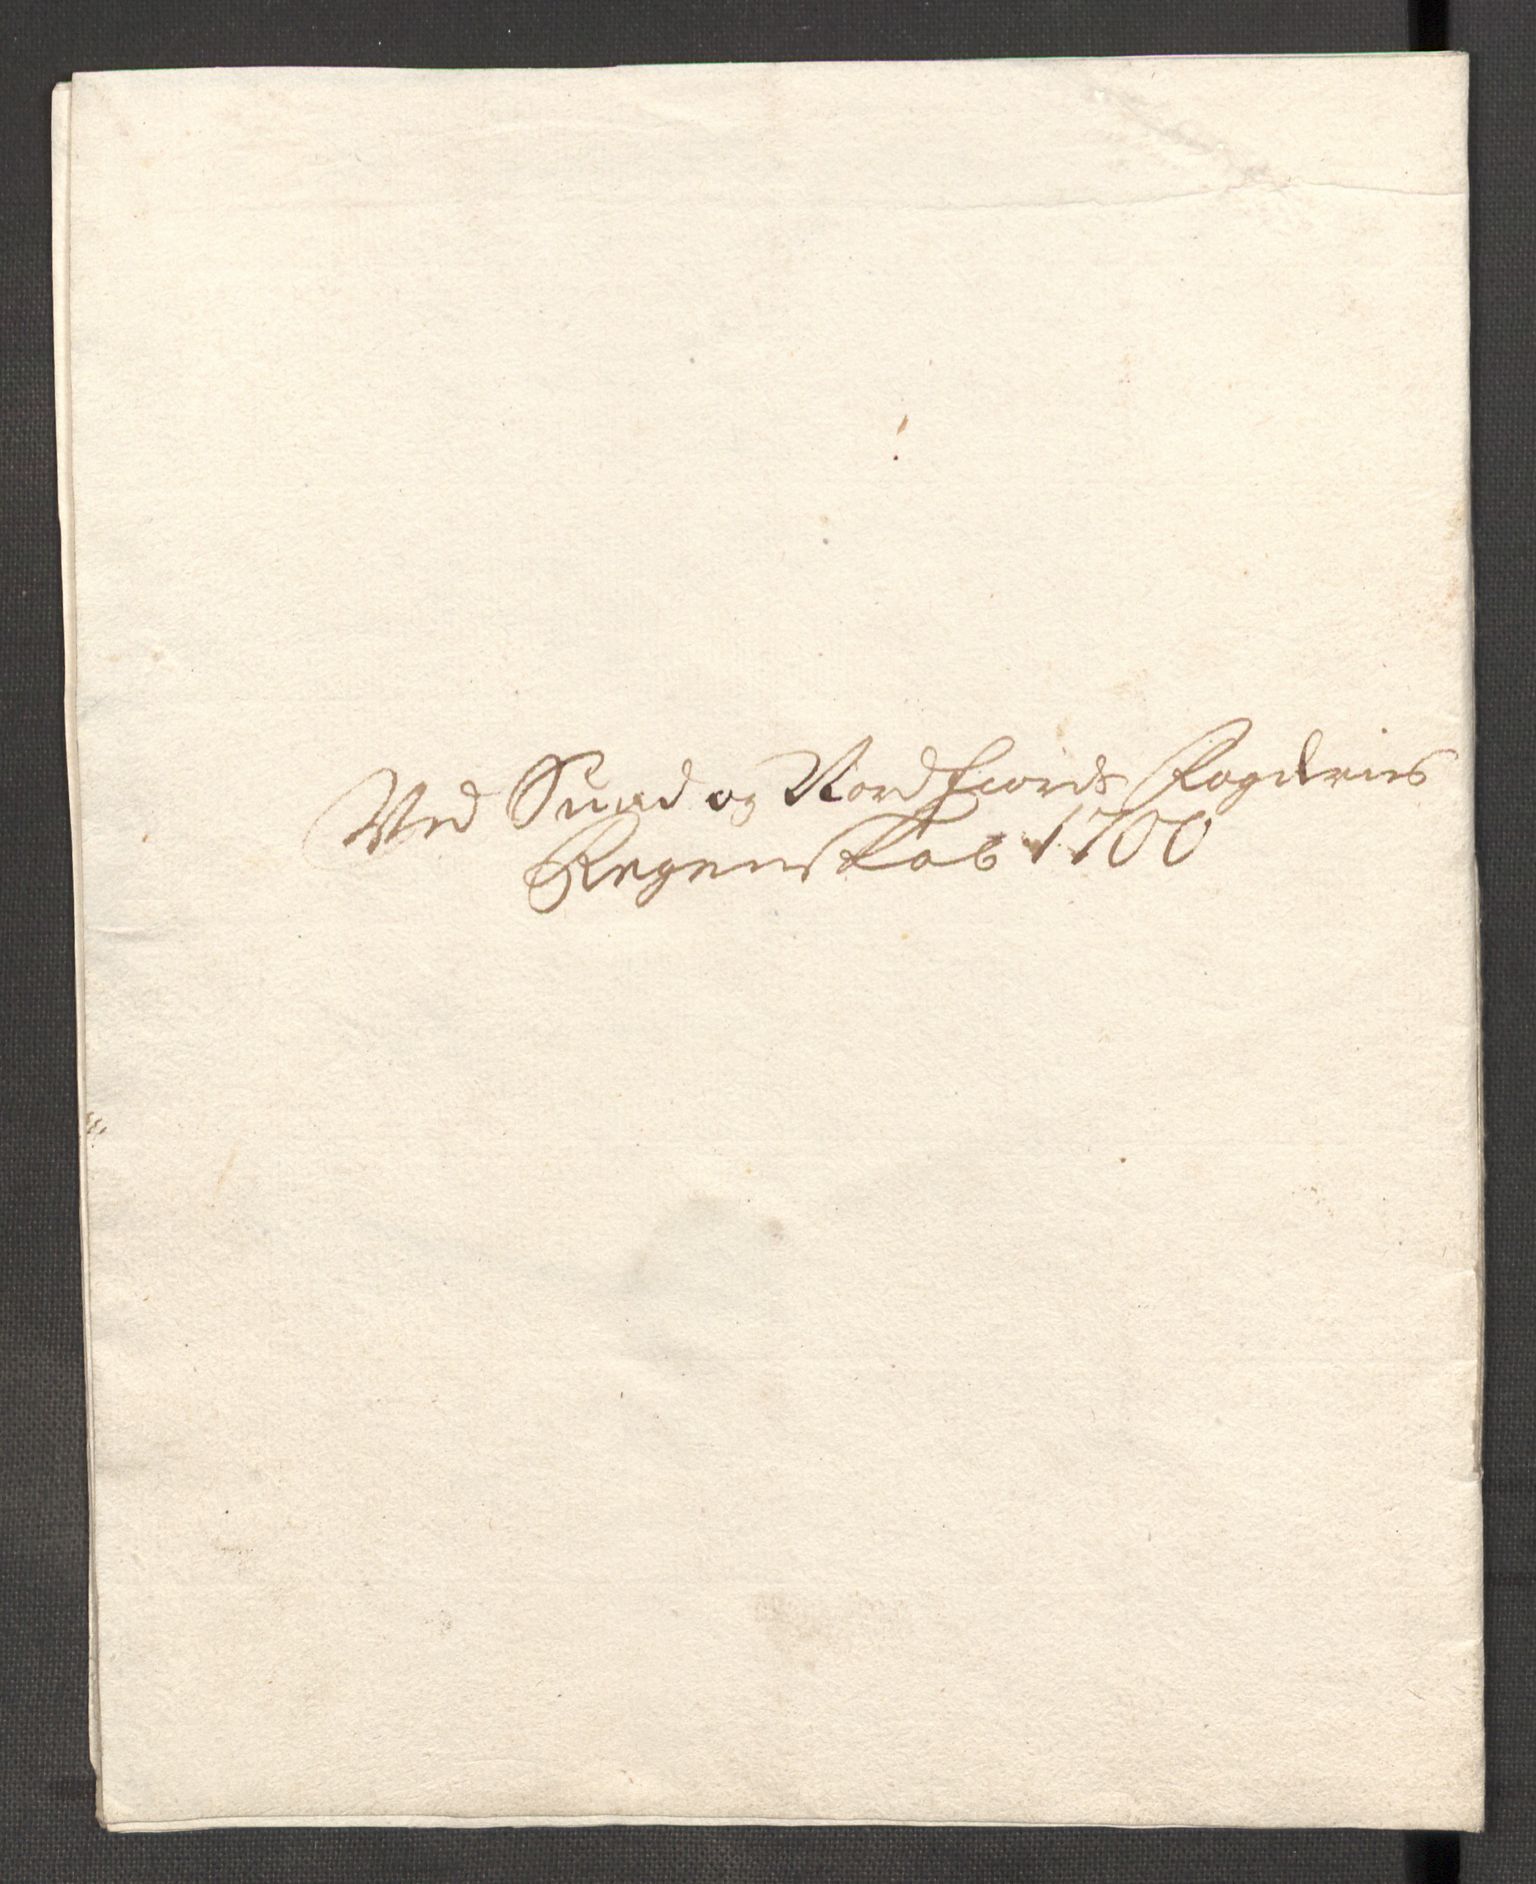 Ved Sund og Nordfiords Fogderies
Regenskab 1700